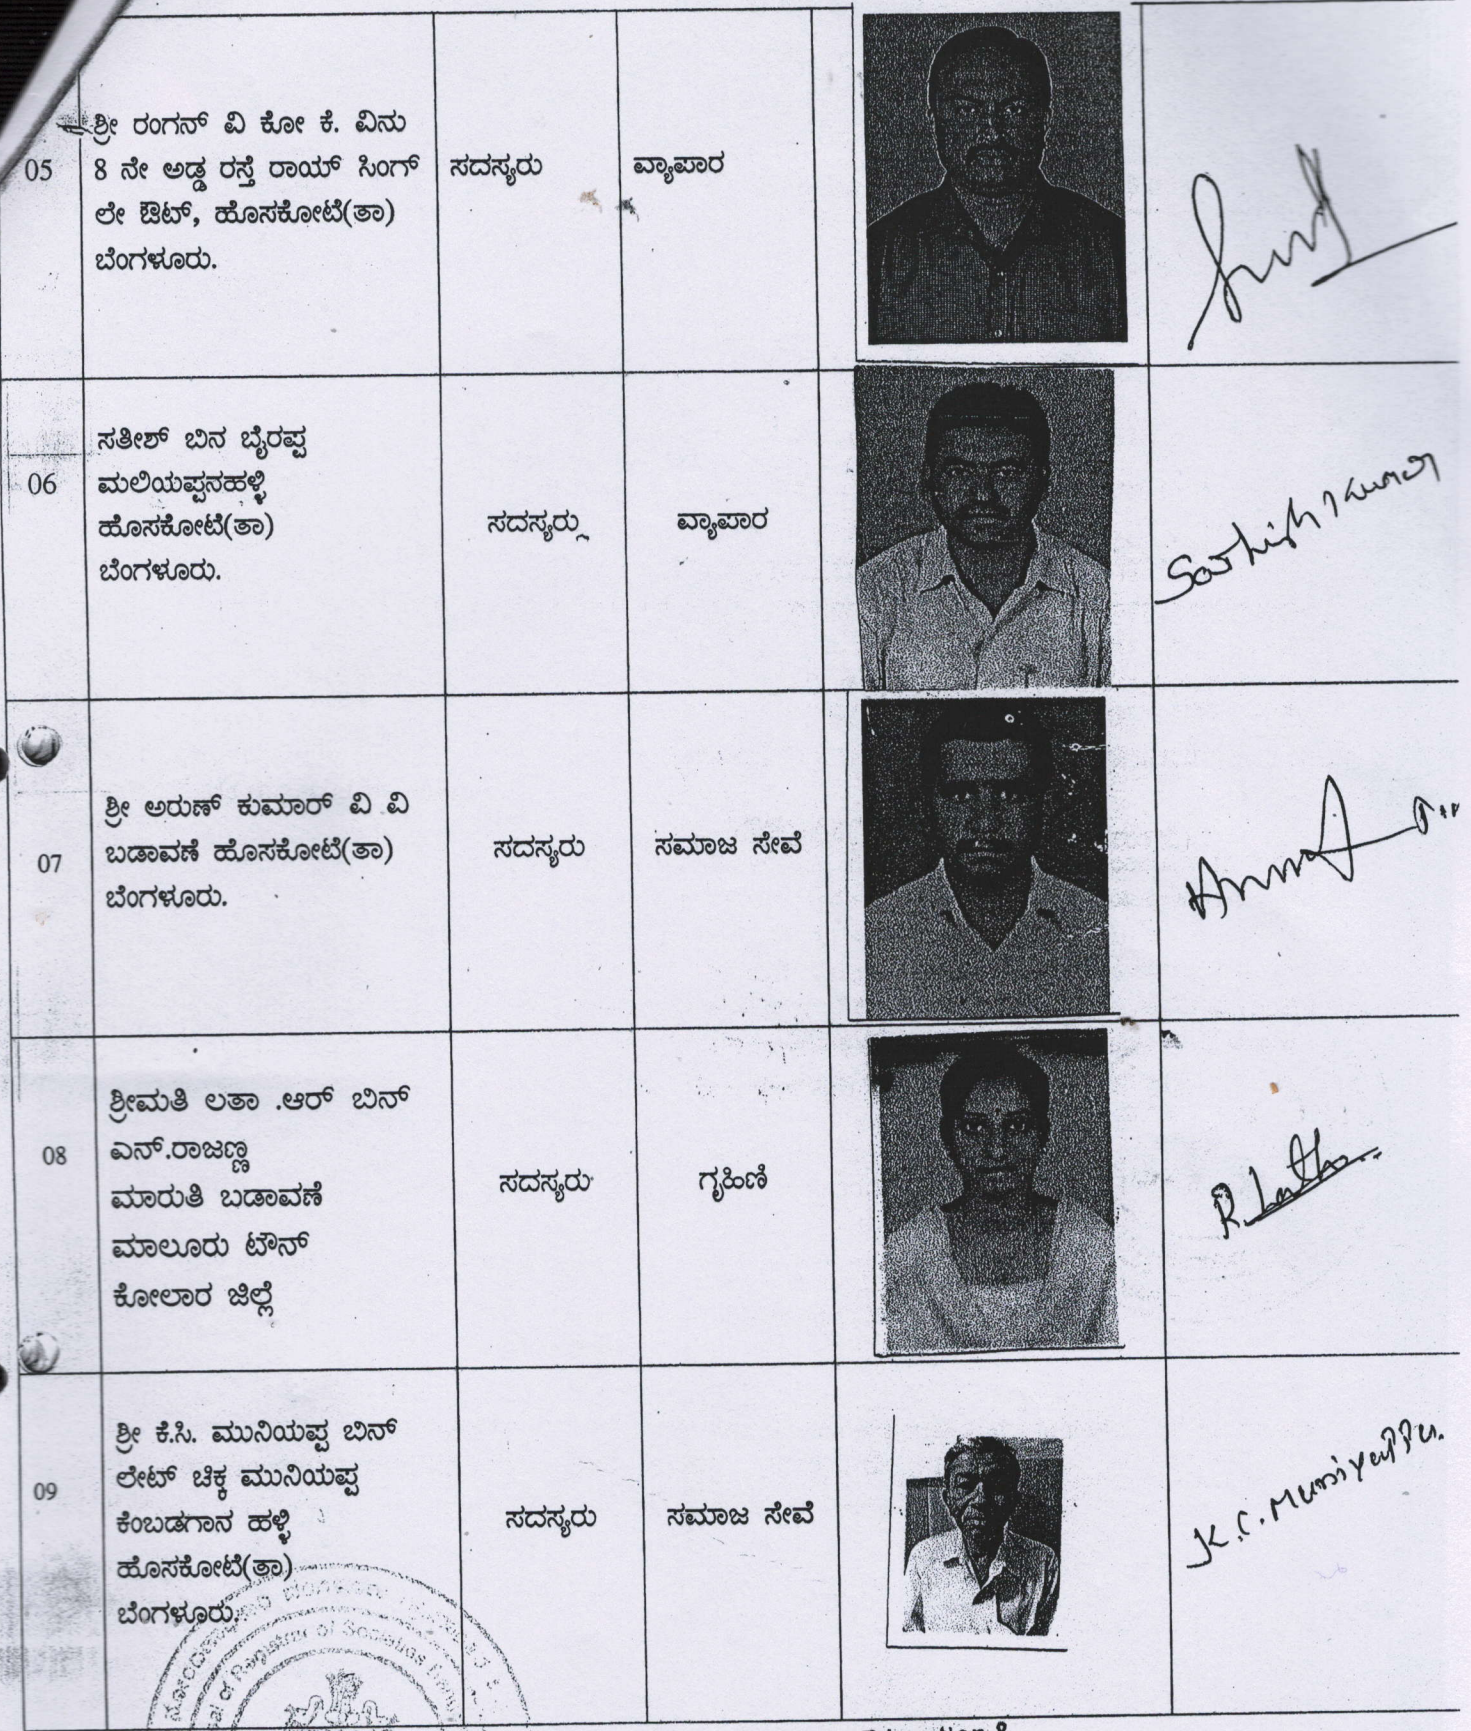 05
ಶ್ರೀ ರಂಗನ್ ವಿ ಕೋ ಕೆ. ವಿನು
8 ನೇ ಅಡ್ಡ ರಸ್ತೆ ರಾಯ್ ಸಿಂಗ್
ಲೇ ಔಟ್, ಹೊಸಕೋಟೆ(ತಾ)
ಬೆಂಗಳೂರು.
ಸದಸ್ಯರು
ವ್ಯಾಪಾರ
06
ಸತೀಶ್ ಬಿನ ಬೈರಪ್ಪ
ಮಲಿಯಪ್ಪನಹಳ್ಳಿ
ಹೊಸಕೋಟೆ(ತಾ)
ಬೆಂಗಳೂರು.
ಸದಸ್ಯರು
ವ್ಯಾಪಾರ
Sathish Kumar
07
ಶ್ರೀ ಅರುಣ್ ಕುಮಾರ್ ವಿ .ವಿ
ಬಡಾವಣೆ ಹೊಸಕೋಟೆ(ತಾ)
ಬೆಂಗಳೂರು.
ಸದಸ್ಯರು
ಸಮಾಜ ಸೇವೆ
08
ಶ್ರೀಮತಿ ಲತಾ .ಆರ್ ಬಿನ್
ಎನ್.ರಾಜಣ್ಣ
ಮಾರುತಿ ಬಡಾವಣೆ
ಮಾಲೂರು ಟೌನ್
ಕೋಲಾರ ಜಿಲ್ಲೆ
ಸದಸ್ಯರು
ಗೃಹಿಣಿ
R. Latha
09
ಶ್ರೀ ಕೆ.ಸಿ. ಮುನಿಯಪ್ಪ ಬಿನ್
ಲೇಟ್ ಚಿಕ್ಕ ಮುನಿಯಪ್ಪ
ಕೆಂಬಡಗಾನ ಹಳ್ಳಿ
ಹೊಸಕೋಟೆ(ತಾ)
ಬೆಂಗಳೂರು.
ಸದಸ್ಯರು
ಸಮಾಜ ಸೇವೆ
K.C. Muniyappa.
of Registrar of Societies